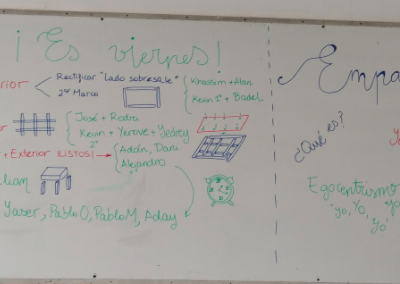 ¡Es viernes!
Rectificar "Lado sobresale"
2º Marco
Khassim + Alan
Kevin 1º + Badel
José + Rodri
Kevin + Yerove + Yedrey
2º
+ Exterior ¡LISTOS!
Adrián, Dani
Alejandro
Yaser, Pablo O, Pablo M, Aday
Empa
¿Qué es?
Egocentrismo
yo, Yo, yo
yo